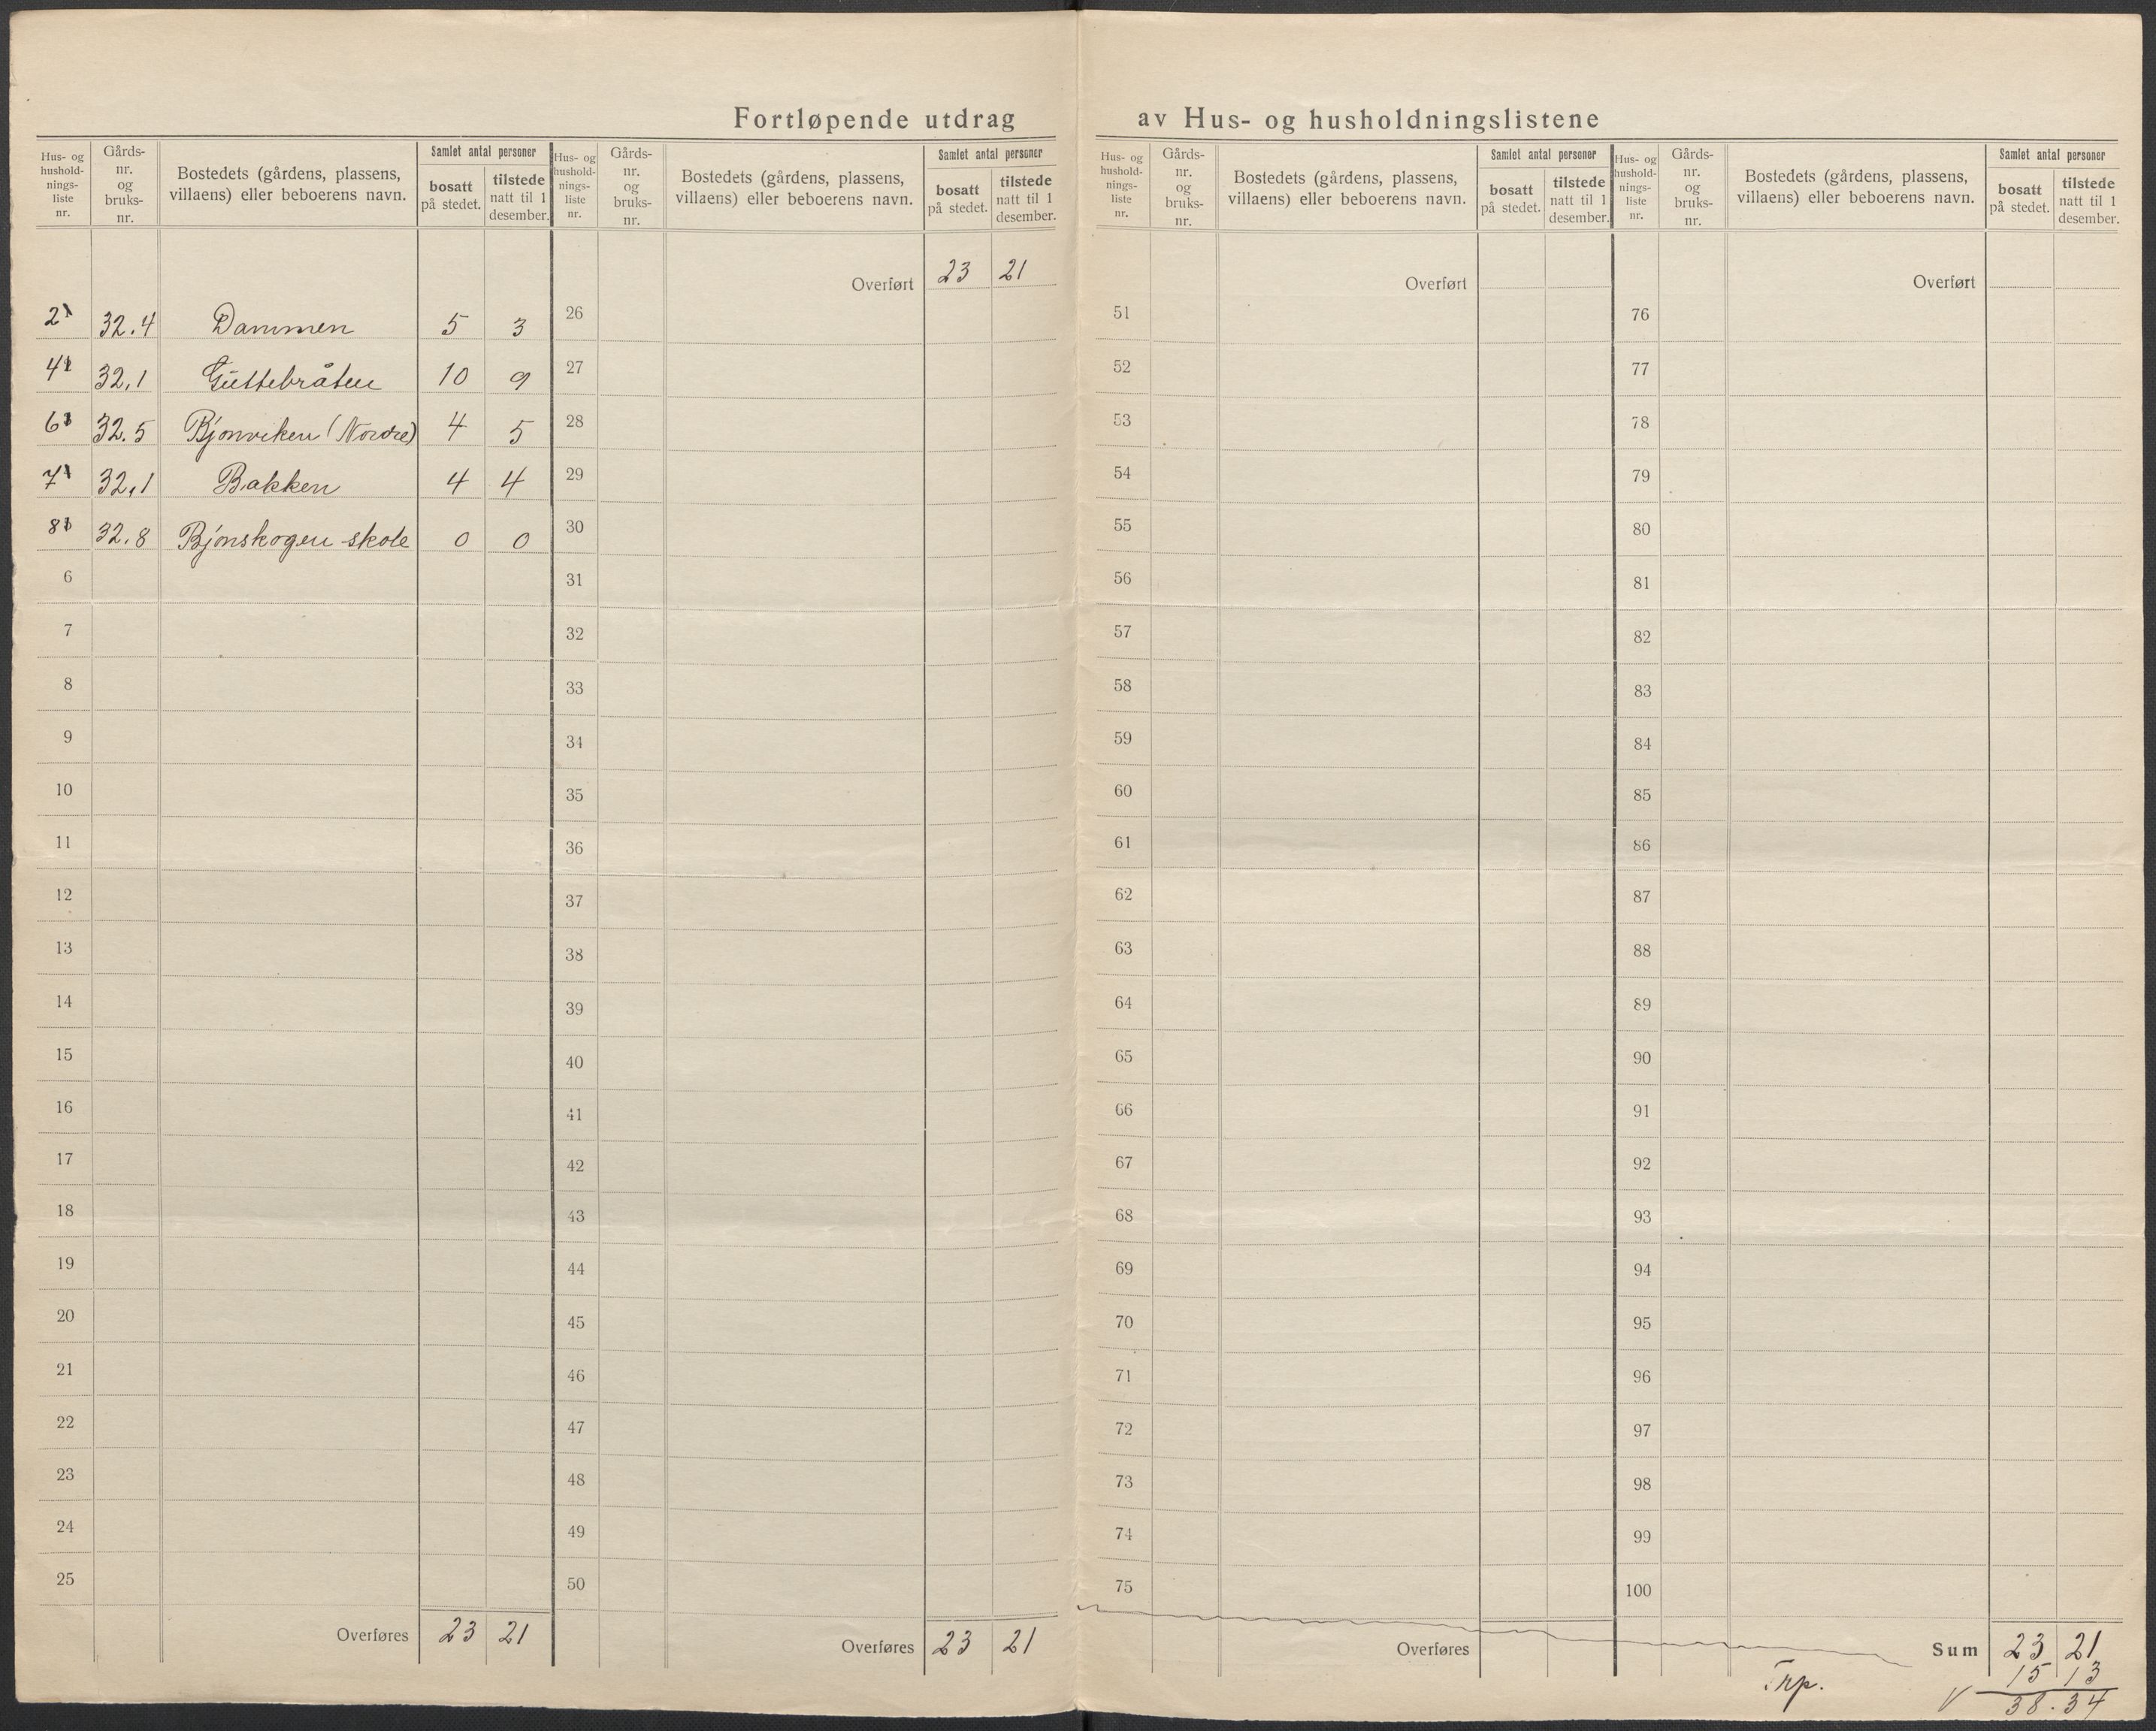 Fortløpende utdrag av Hus- og husholdningslistene
Hus- og hushold-nings-liste nr.
Gårds-nr. og bruks-nr.
Bostedets (gårdens, plassens, villaens) eller beboerens navn.
Samlet antal personer
bosatt på stedet.
tilstede natt til 1 desember.
2 32.4 Dammen 5 3
4 32,1 Guttebråten 10 9
6 32.5 Bjonviken (Nordre) 4 5
7 32,1 Bakken 4 4
8 32.8 Bjonskogen skole 0 0
6
7
8
9
10
11
12
13
14
15
16
17
18
19
20
21
22
23
24
25
Overføres 23 21
Hus- og hushold-nings-liste nr.
Gårds-nr. og bruks-nr.
Bostedets (gårdens, plassens, villaens) eller beboerens navn.
Samlet antal personer
bosatt på stedet.
tilstede natt til 1 desember.
Overført 23 21
26
27
28
29
30
31
32
33
34
35
36
37
38
39
40
41
42
43
44
45
46
47
48
49
50
Overføres 23 21
Hus- og hushold-nings-liste nr.
Gårds-nr. og bruks-nr.
Bostedets (gårdens, plassens, villaens) eller beboerens navn.
Samlet antal personer
bosatt på stedet.
tilstede natt til 1 desember.
Overført
51
52
53
54
55
56
57
58
59
60
61
62
63
64
65
66
67
68
69
70
71
72
73
74
75
Overføres
Hus- og hushold-nings-liste nr.
Gårds-nr. og bruks-nr.
Bostedets (gårdens, plassens, villaens) eller beboerens navn.
Samlet antal personer
bosatt på stedet.
tilstede natt til 1 desember.
Overført
76
77
78
79
80
81
82
83
84
85
86
87
88
89
90
91
92
93
94
95
96
97
98
99
100
Sum 23 21
15 13
38.34